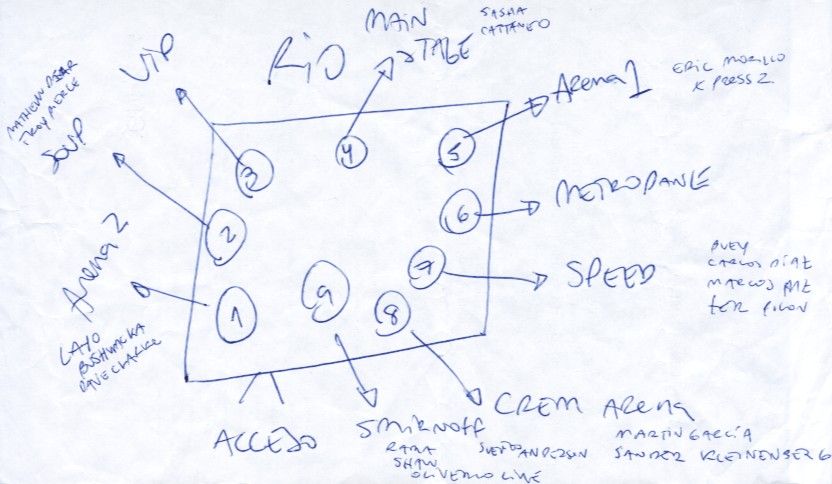 MAIN
STAGE
SASHA
CATTANEO
RIO
VIP
Arena 1
ERIC MORILLO
X PRESS 2
MATHEW DEAR
TROY PIERCE
SOUP
3
4
5
METRODANCE
6
2
Arena 2
LAYO
BUSHWACKA
DAVE CLARKE
7
SPEED
CARLOS DIAZ
MARCOS PAZ
1
9
8
ACCESO
SMIRNOFF
SHAW
OLIVERIO LIVE
CREM Arena
ANDERSON
MARTIN GARCIA
SANDER KLEINENBERG